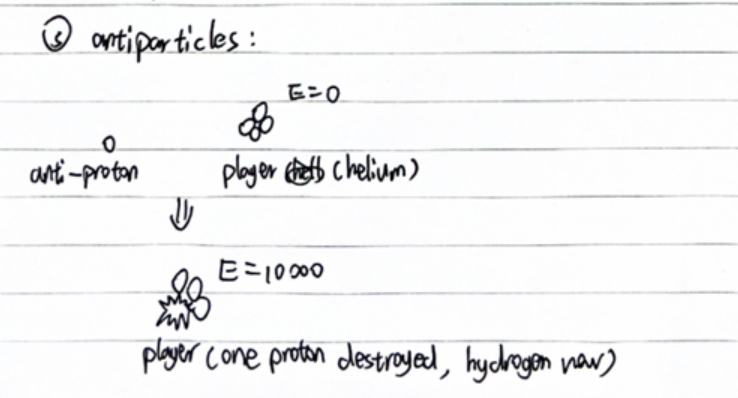 ③ antiparticles:
E=0
anti-proton player (helium)
⇓
E=10000
player (one proton destroyed, hydrogen now)